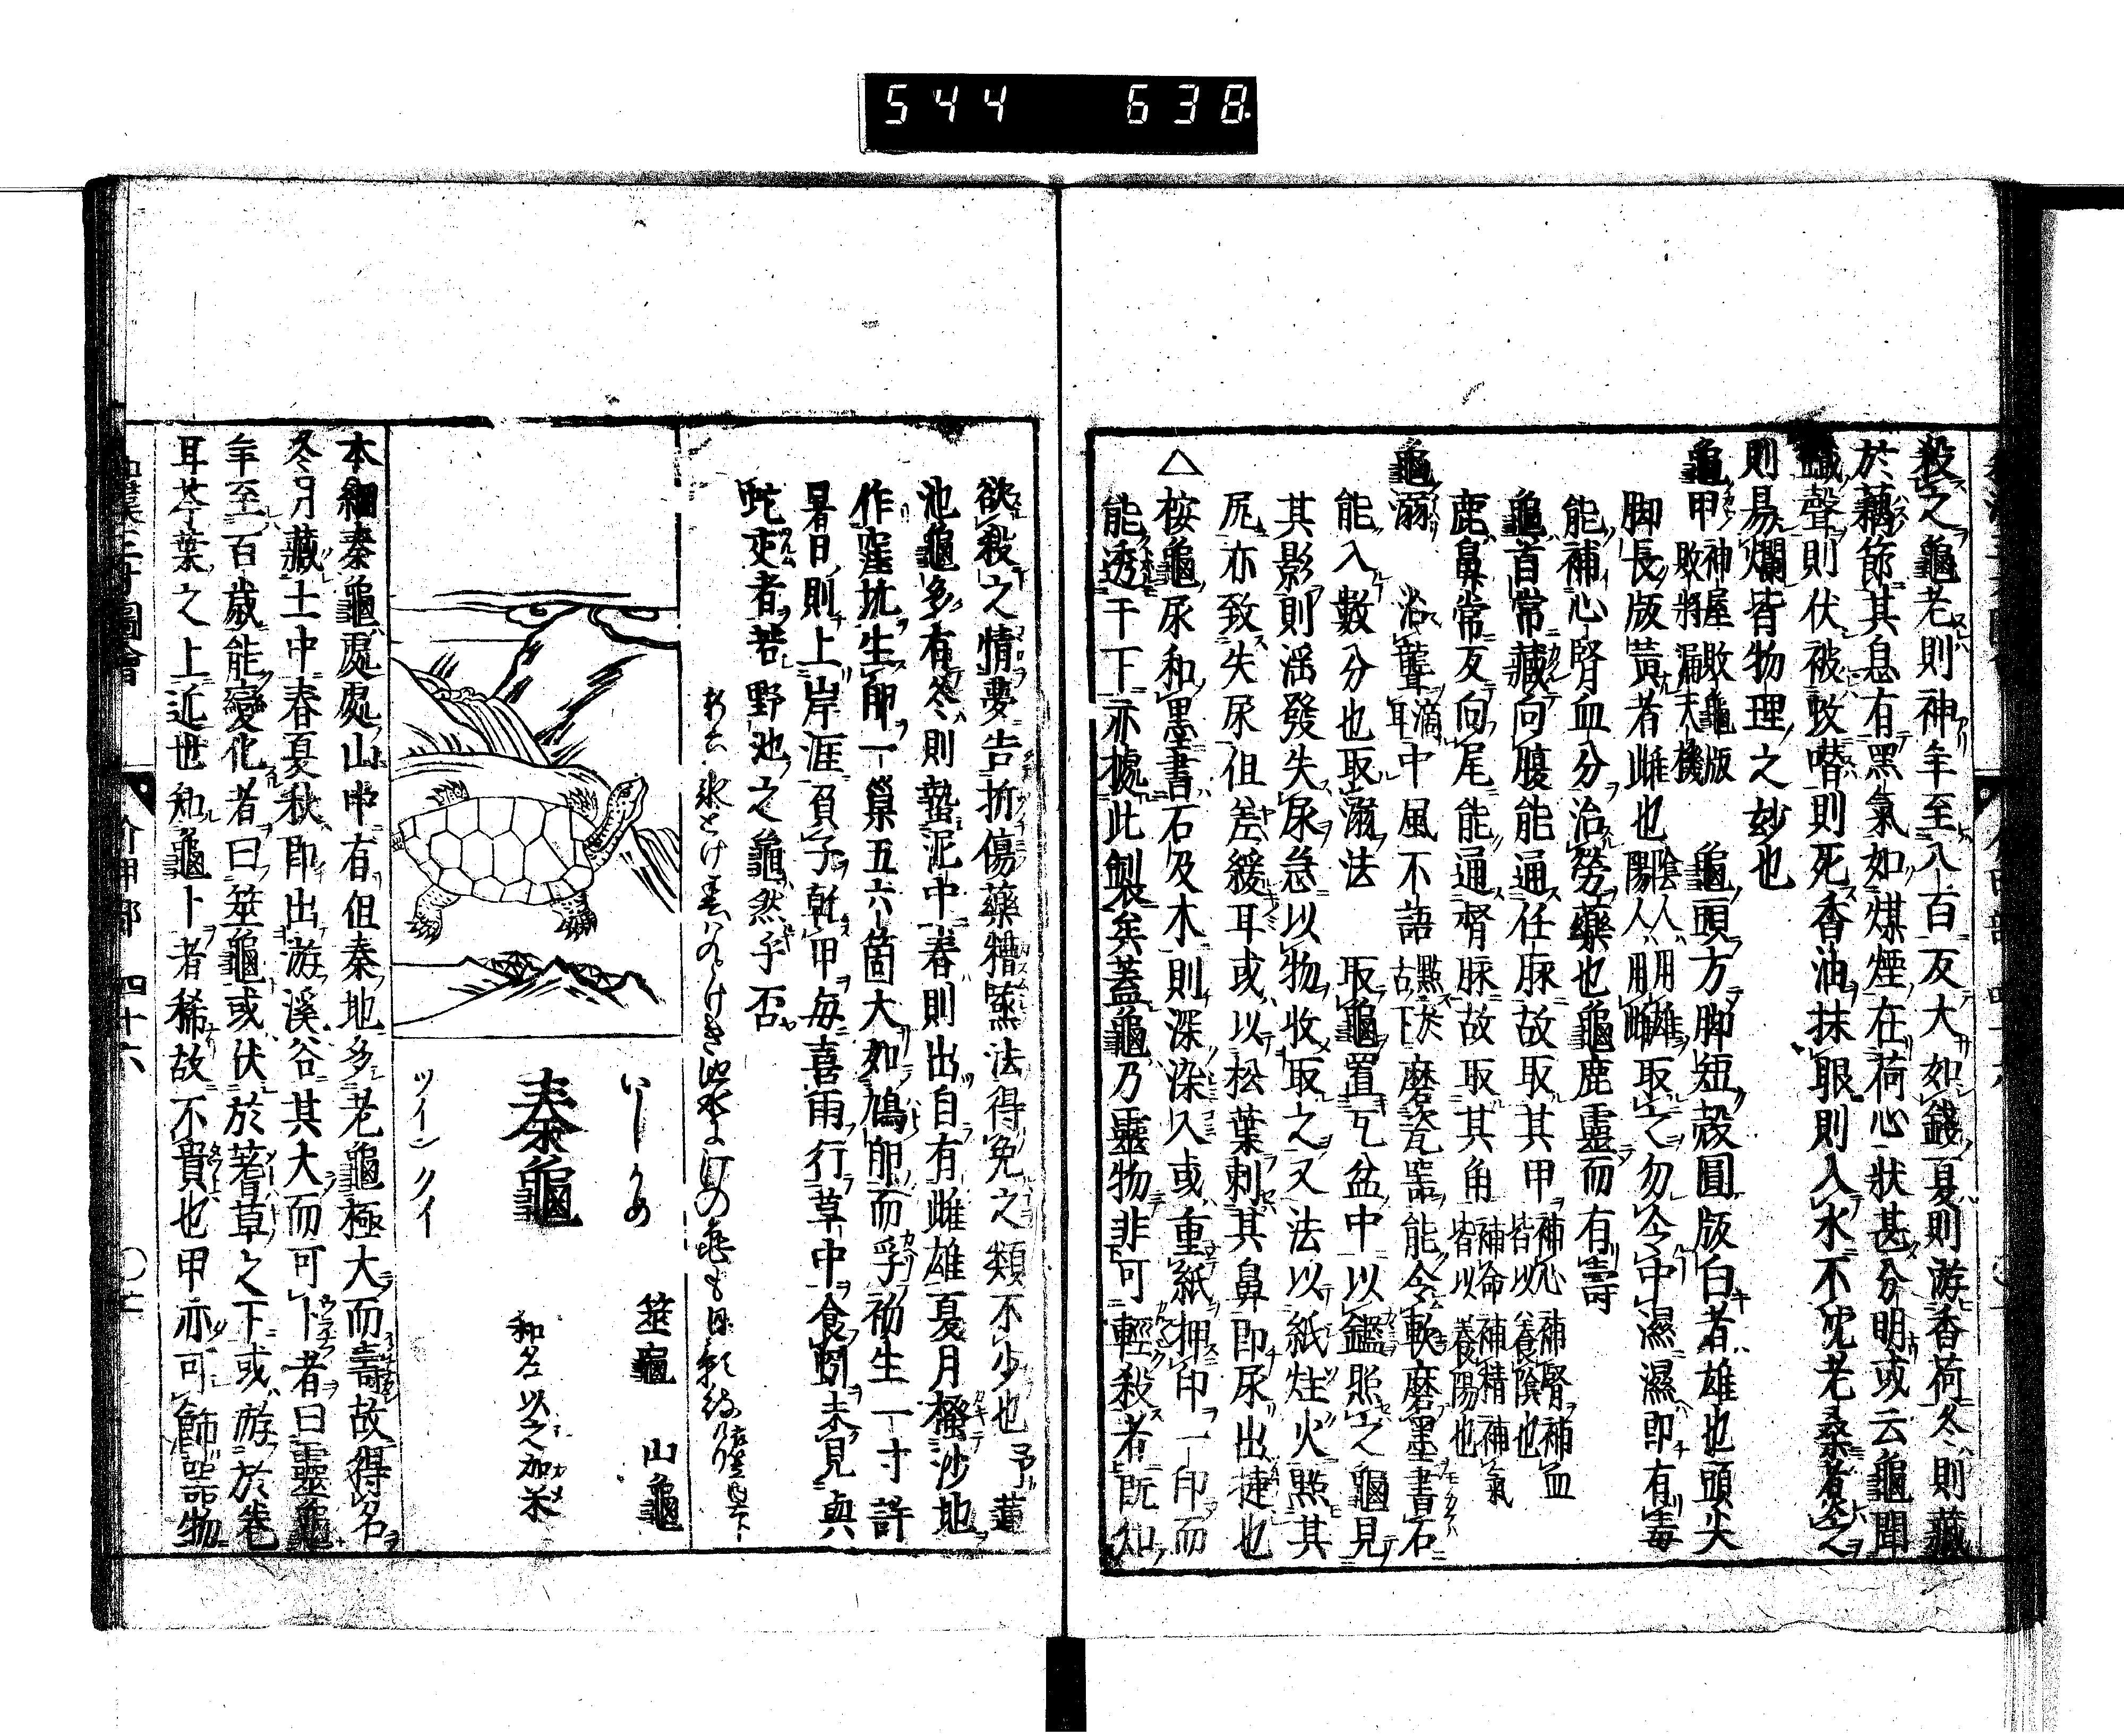 544 638
殺之龜老則神年至八百反大如錢夏則游香荷冬則藏
於藕節其息有黑氣如煤煙在荷心狀甚分明或云龜聞
鐵聲則伏被蚊噆則死香油抹眼則入水不沈老桑煮之
則易爛皆物理之妙也
龜甲 神屋 敗龜版 敗將 漏天機 龜頭方脚短殼圓版白者雄也頭尖
脚長版黃者雌也 陰人用雄 陽人用雌 取之勿令中濕濕即有毒
能補心腎血分治勞藥也龜鹿靈而有壽
龜首常藏向腹能通任脉故取其甲 補心補腎補血 皆以養陰也
鹿鼻常反向尾能通督脉故取其角 補命補精補氣 皆以養陽也
龜溺 治聾 滴耳 中風不語 點於舌下 磨瓷器能令軟磨墨書石
能入數分也取溺法 取龜置瓦盆中以鑑照之龜見
其影則淫發失尿急以物收取之又法以紙炷火點其
尻亦致失尿但差緩耳或以松葉刺其鼻即尿出捷也
△桉龜尿和墨書石及木則深染入或重紙押印一印而
能透千下亦據此製矣蓋龜乃靈物非可輕殺者既知
欲殺之情夢告折傷藥糟𤎅法得免之類不少也予蓮
池龜多有冬則蟄泥中春則出自有雌雄夏月搔沙地
作窪坑生卵一巢五六箇大如鳩卵而孚初生一寸許
暑日則上岸涯負子乾甲每喜雨行草中食蚓未見與
蛇交者若野池之龜然乎否
秦龜
いしかめ
ツイン クイ
筮龜 山龜
和名以之加米
本綱秦龜處處山中有但秦地多老龜極大而壽故得名
冬月藏土中春夏秋即出游溪谷其大而可卜者曰靈龜
年至百歲能變化者曰筮龜或伏於蓍草之下或游於卷
耳芩葉之上近世知龜卜者稀故不貴也甲亦可飾噐物
和漢三才圖會 介甲部 四十六